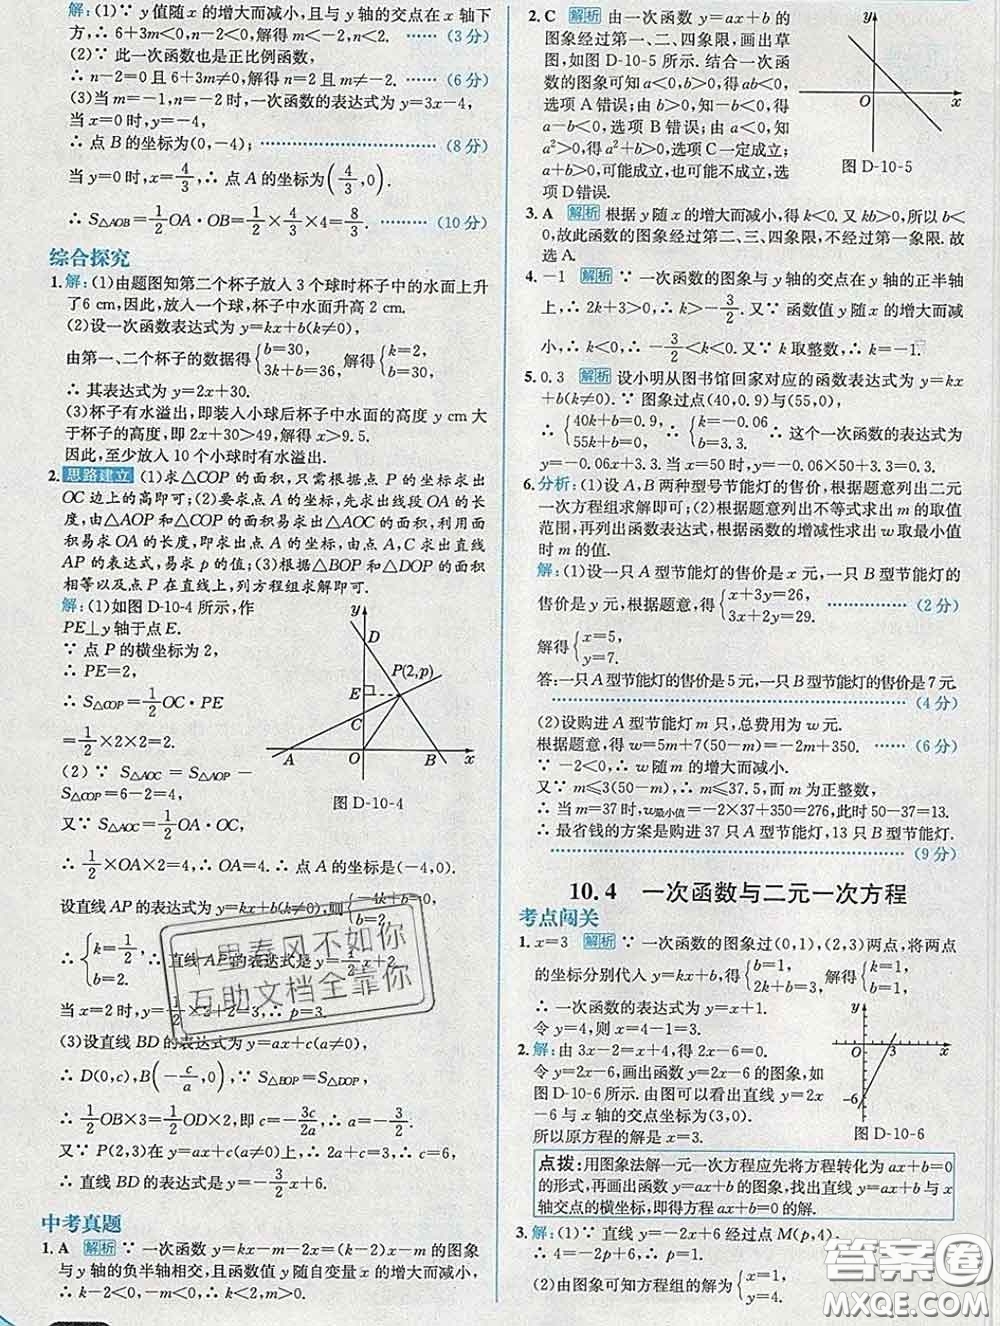 解:(1)∵ y值随x的增大而减小,且与y轴的交点在x轴下
方,∴ 6+3m<0,n-2<0,解得 m<-2,n<2. ……(3分)
(2)∵ 此一次函数也是正比例函数,
∴ n-2=0且6+3m≠0,解得 n=2且m≠-2. ……(6分)
(3)当m=-1,n=-2时,一次函数的表达式为y=3x-4,
当x=0时,y=-4,
∴ 点B的坐标为(0,-4); ……(8分)
当y=0时,x=4/3,∴ 点A的坐标为(4/3,0).
∴ S△AOB=1/2OA·OB=1/2×4/3×4=8/3. ……(10分)
综合探究
1.解:(1)由题图知第二个杯子放入3个球时杯子中的水面上升
了6 cm,因此,放入一个球,杯子中水面升高2 cm.
(2)设一次函数表达式为y=kx+b(k≠0),
由第一、二个杯子的数据得{b=30, 3k+b=36,解得{k=2, b=30.
∴ 其表达式为y=2x+30.
(3)杯子有水溢出,即装入小球后杯子中水面的高度y cm大
于杯子的高度,即2x+30>49,解得x>9.5.
因此,至少放入10个小球时有水溢出.
2.思路建立 (1)求△COP的面积,只需根据点P的坐标求出
OC边上的高即可;(2)要求点A的坐标,先求出线段OA的长
度,由△AOP和△COP的面积易求出△AOC的面积,利用面
积易求OA的长度,即求出点A的坐标,由点A,C求出直线
AP的表达式,易求p的值;(3)根据△BOP和△DOP的面积
相等以及点P在直线上,列方程组求解即可.
解:(1)如图D-10-4所示,作
PE⊥y轴于点E.
∵ 点P的横坐标为2,
∴ PE=2,
∴ S△COP=1/2OC·PE
=1/2×2×2=2.
(2)∵ S△AOC=S△AOP-
S△COP=6-2=4,
又∵ S△AOC=1/2OA·OC,
y
D
P(2,p)
E
C
A
O
B
x
图 D-10-4
∴ 1/2×OA×2=4,∴ OA=4.∴ 点A的坐标是(-4,0).
设直线AP的表达式为y=kx+b(k≠0),则{-4k+b=0, b=2,
∴ {k=1/2, b=2. ∴ 直线AP的表达式是y=1/2x+2.
当x=2时,y=1/2×2+2=3,∴ p=3.
(3)设直线BD的表达式为y=ax+c(a≠0),
∴ D(0,c),B(-c/a,0),∵ S△BOP=S△DOP,
∴ 1/2OB×3=1/2OD×2,即c=-3c/2a,∴ a=-3/2.
又∵ P(2,3)在y=ax+c(a≠0)上,∴ 2a+c=3,∴ c=6,
∴ 直线BD的表达式是y=-3/2x+6.
中考真题
1.A 解析 ∵ 一次函数y=kx-m-2x=(k-2)x-m的图象
与y轴的负半轴相交,且函数值y随自变量x的增大而减小,
∴ k-2<0,-m<0,∴ k<2,m>0.
2.C 解析 由一次函数y=ax+b的
图象经过第一、二、四象限,画出草
图,如图D-10-5所示.结合一次函
数的图象可知a<0,b>0,∴ ab<0,
选项A错误;由b>0,a<0,得
a-b<0,选项B错误;由a<0,知
a²>0,b>0,故选项C一定成立;
a+b>0,可能成立,也可能不成立,
选项D错误.
y
O
x
图 D-10-5
3.A 解析 根据y随x的增大而减小,得k<0.又kb>0,所以b<
0,故此函数的图象经过第二、三、四象限,不经过第一象限.故
选A.
4.-1 解析 ∵ 一次函数的图象与y轴的交点在y轴的正半轴
上,∴ 2k+3>0,∴ k>-3/2.又∵ 函数值y随x的增大而减
小,∴ k<0,∴ -3/2<k<0.又∵ k取整数,∴ k=-1.
5.0.3 解析 设小明从图书馆回家对应的函数表达式为y=kx
+b(k≠0).∵ 图象过点(40,0.9)与(55,0),
∴ {40k+b=0.9, 55k+b=0, ∴ {k=-0.06, b=3.3. ∴ 这个一次函数为y=
-0.06x+3.3.当x=50时,y=-0.06×50+3.3=0.3.
6.分析:(1)设A,B两种型号节能灯的售价,根据题意列出二元
一次方程组求解即可;(2)根据题意列出不等式求出m的取值
范围,再列出函数表达式,根据函数的增减性求出w取最小值
时m的值.
解:(1)设一只A型节能灯的售价是x元,一只B型节能灯的
售价是y元,根据题意,得{x+3y=26, 3x+2y=29. ……(2分)
解得{x=5, y=7.
答:一只A型节能灯的售价是5元,一只B型节能灯的售价是7元.
……(4分)
(2)设购进A型节能灯m只,总费用为w元.
根据题意,得w=5m+7(50-m)=-2m+350. ……(6分)
∵ -2<0,∴ w随m的增大而减小.
又∵ m≤3(50-m),∴ m≤37.5,而m为正整数,
∴ 当m=37时,w最小值=-2×37+350=276,此时50-37=13.
∴ 最省钱的方案是购进37只A型节能灯,13只B型节能灯.
……(9分)
10.4 一次函数与二元一次方程
考点闯关
1.x=3 解析 ∵ 一次函数的图象过(0,1),(2,3)两点,将两点
的坐标分别代入y=kx+b,得{b=1, 2k+b=3, 解得{k=1, b=1.
∴ 一次函数的表达式为y=x+1.
令y=4,则x=4-1=3.
2.解:由3x-2=x+4,得2x-6=0.
令y=2x-6,画出函数y=2x-6的图象,如
图D-10-6所示.由图可以看出直线y=2x
-6与x轴的交点坐标为(3,0).
所以原方程的解是x=3.
y
O
3
x
-6
图 D-10-6
点拨:用图象法解一元一次方程应先将方程转化为ax+b=0
的形式,再画出函数y=ax+b的图象,找出直线y=ax+b与x
轴交点的横坐标,即得方程ax+b=0的解.
3.解:(1)∵ 直线y=-2x+6经过点M(p,4),
∴ 4=-2p+6,∴ p=1.
(2)由图象可知方程组的解为{x=1, y=4.
十里春风不如你
互助文档全靠你
答案圈
MXQE.COM